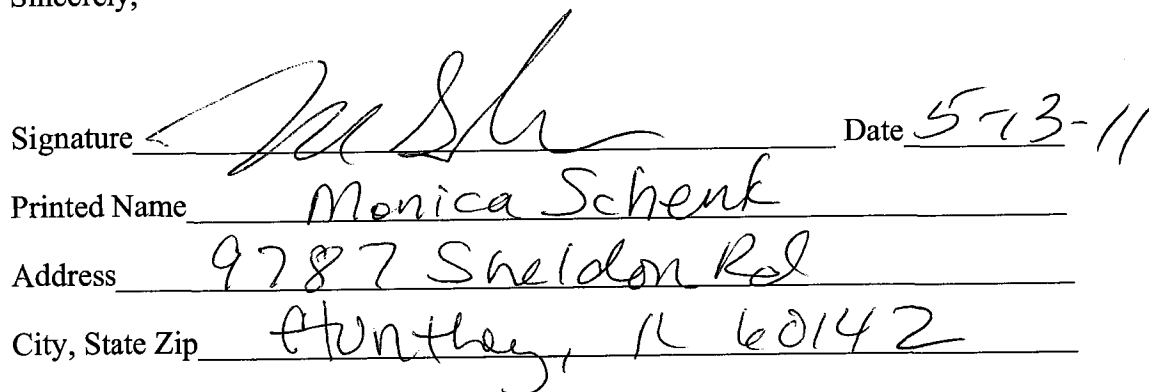 Sincerely,
Signature Date 5-13-11
Printed Name Monica Schenk
Address 9787 Sheldon Rd
City, State Zip Huntley, IL 60142